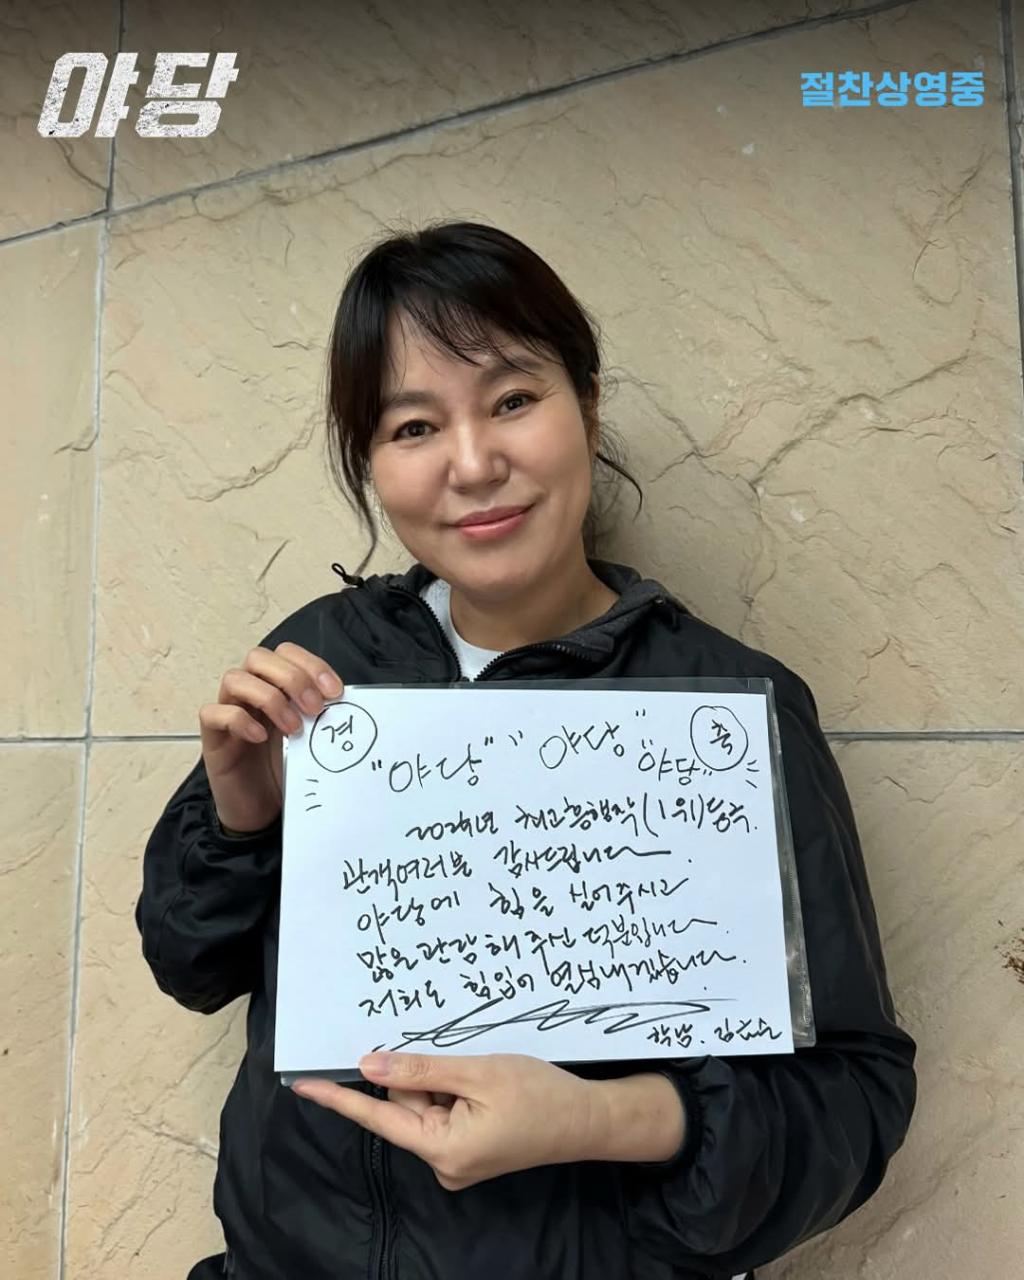 야당
절찬상영중
경 축
"야당" "야당" "야당"
2025년 최고흥행작(1위)등극.
관객여러분 감사드립니다.
야당에 힘을 실어주시고
많은관람해주신 덕분입니다
저희도 힘입어 열심내겠습니다.
학남.